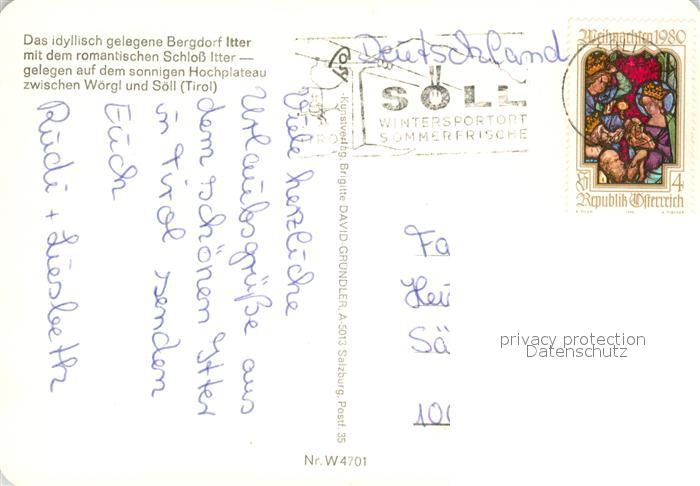 Das idyllisch gelegene Bergdorf Itter
mit dem romantischen Schloß Itter —
gelegen auf dem sonnigen Hochplateau
zwischen Wörgl und Söll (Tirol)
Deutschland
SÖLL
WINTERSPORTORT
SOMMERFRISCHE
Weihnachten 1980
S 4
Republik Österreich
Viele herzliche
Urlaubsgrüße aus
dem schönen Itter
in Tirol senden
Euch
Rudi + Liesbeth
Kunstverlag, Brigitte DAVID-GRÜNDLER, A-5013 Salzburg, Postf. 35
Fa
Hei
Sä
100
privacy protection
Datenschutz
Nr. W 4701